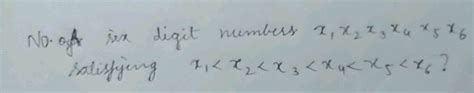 No. of six digit numbers x₁ x₂ x₃ x₄ x₅ x₆
satisfying x₁ < x₂ < x₃ < x₄ < x₅ < x₆ ?